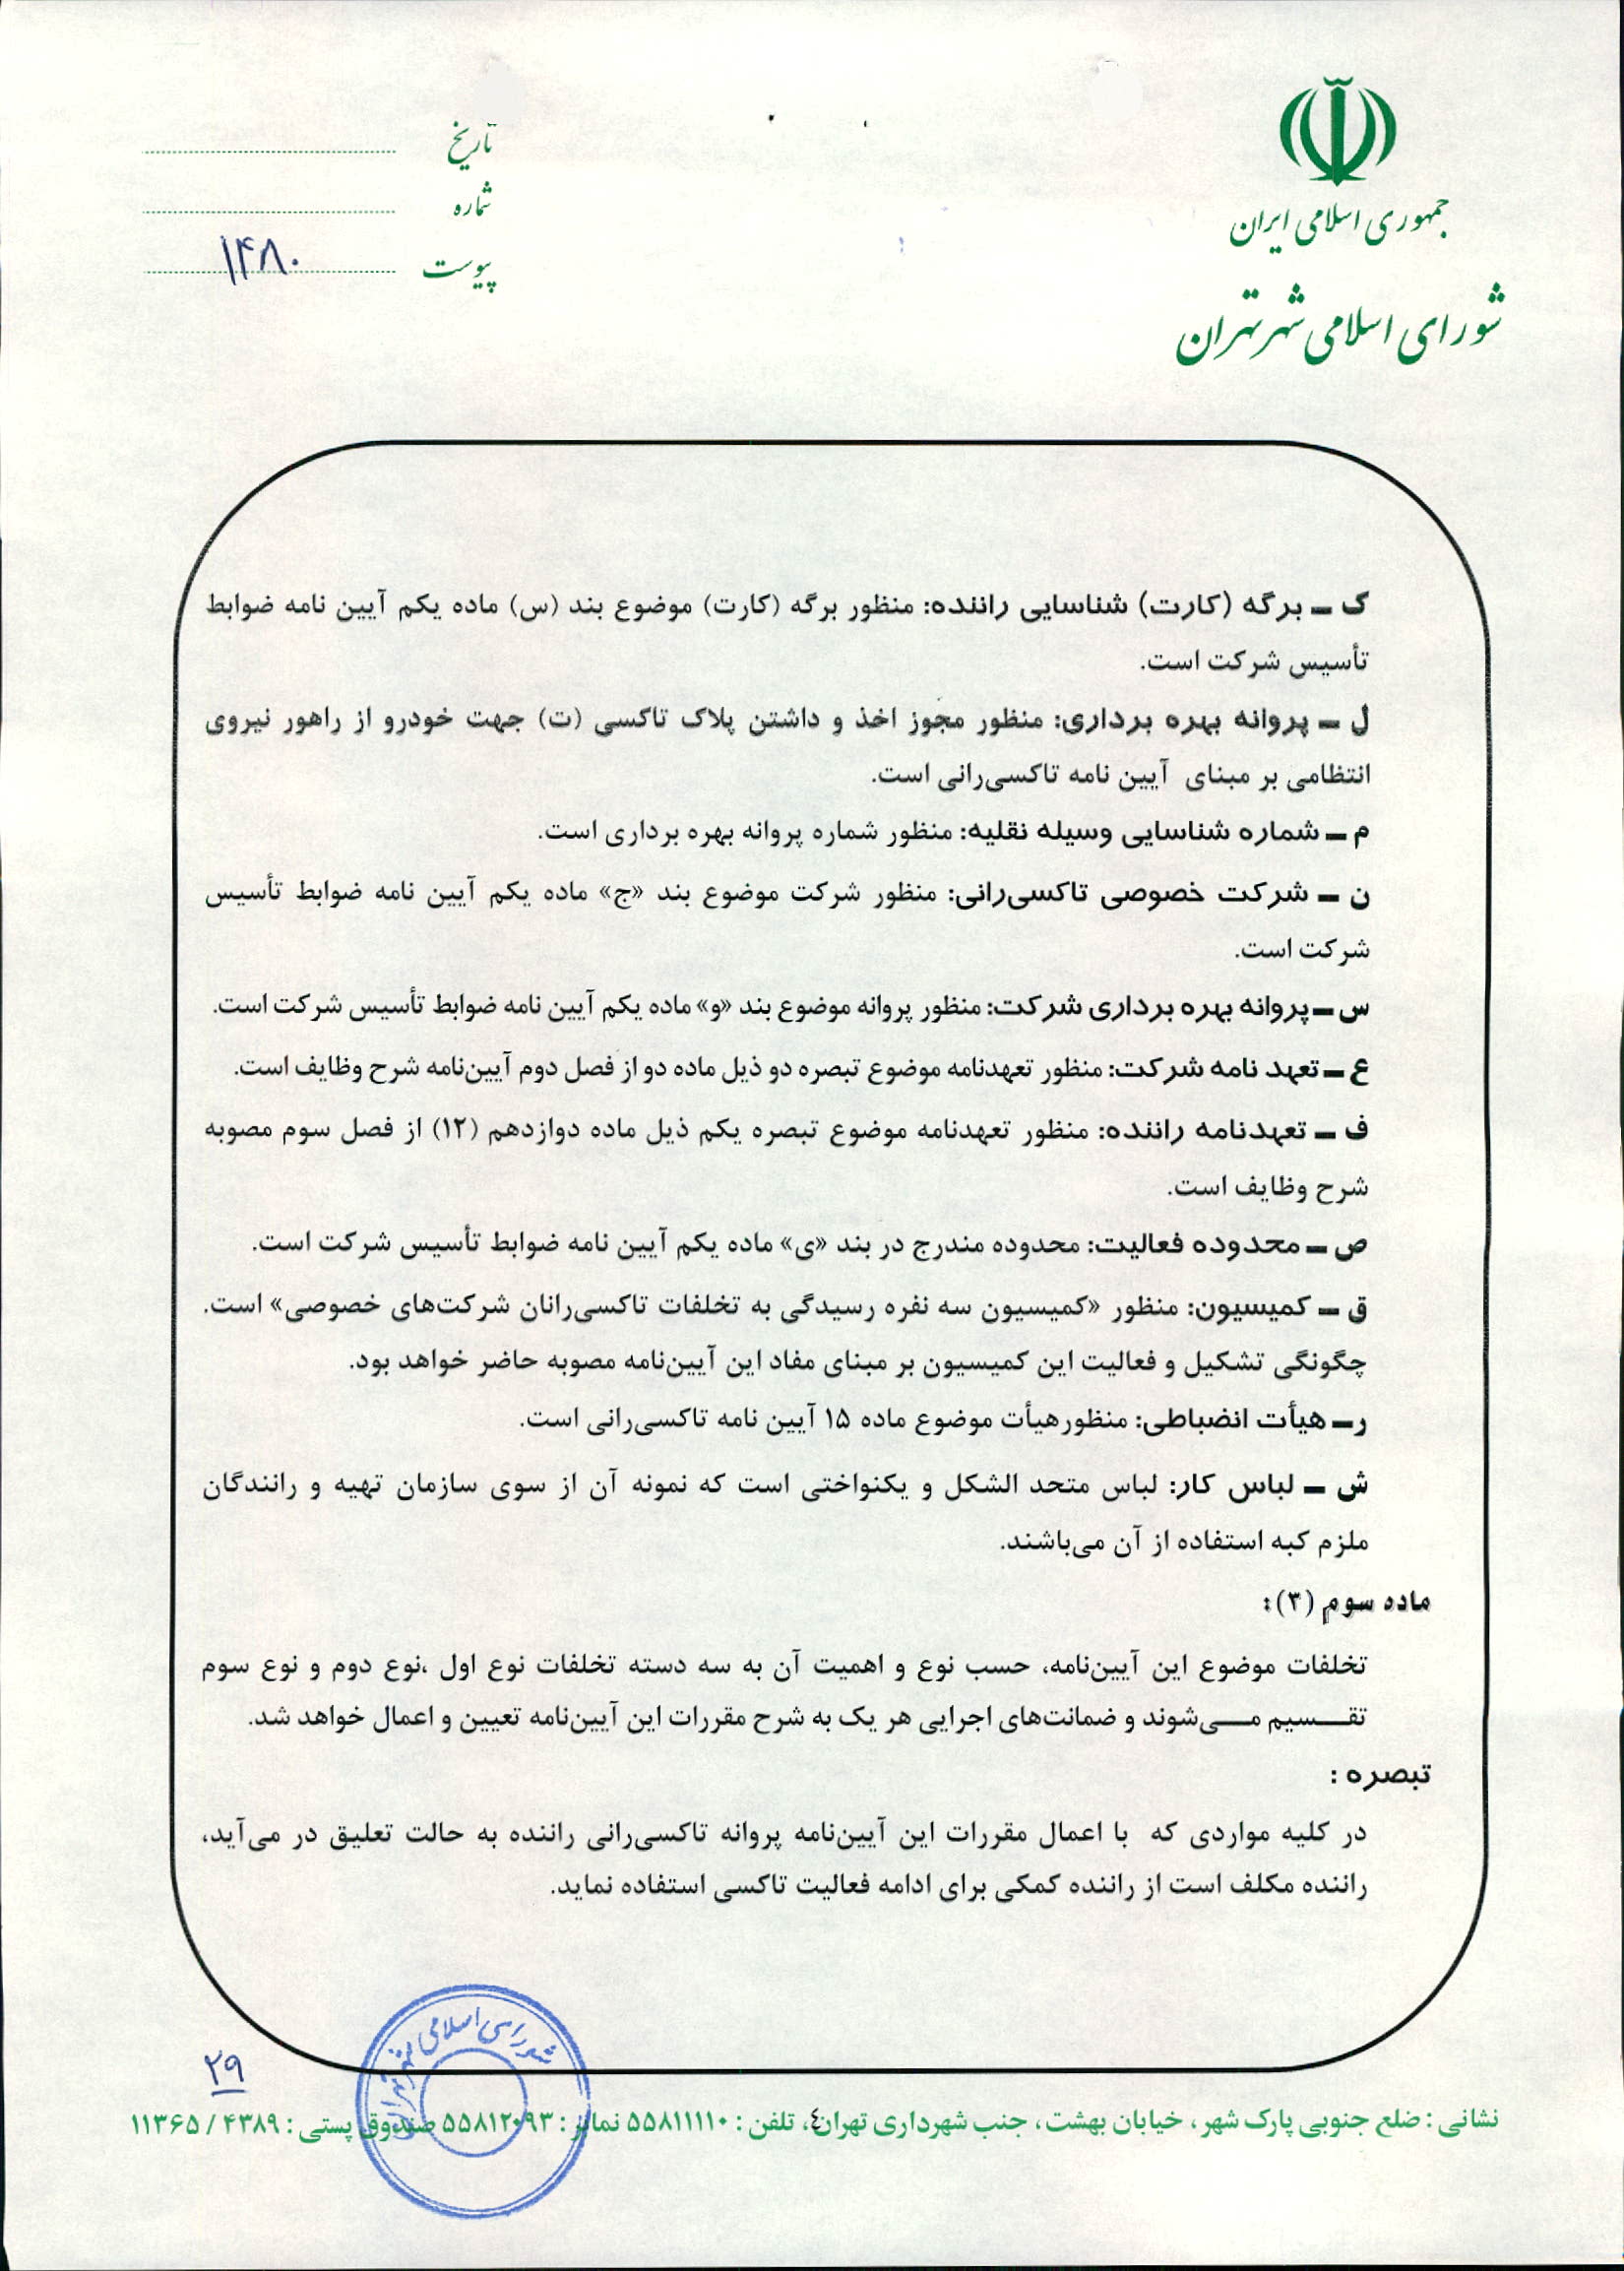 جمهوری اسلامی ایران
شورای اسلامی شهر تهران
تاریخ
شماره
پیوست ۱۴۸۰
ک ــ برگه (کارت) شناسایی راننده: منظور برگه (کارت) موضوع بند (س) ماده یکم آیین نامه ضوابط
تأسیس شرکت است.
ل ــ پروانه بهره برداری: منظور مجوز اخذ و داشتن پلاک تاکسی (ت) جهت خودرو از راهور نیروی
انتظامی بر مبنای آیین نامه تاکسی‌رانی است.
م ــ شماره شناسایی وسیله نقلیه: منظور شماره پروانه بهره برداری است.
ن ــ شرکت خصوصی تاکسی‌رانی: منظور شرکت موضوع بند «ج» ماده یکم آیین نامه ضوابط تأسیس
شرکت است.
س ــ پروانه بهره برداری شرکت: منظور پروانه موضوع بند «و» ماده یکم آیین نامه ضوابط تأسیس شرکت است.
ع ــ تعهد نامه شرکت: منظور تعهدنامه موضوع تبصره دو ذیل ماده دو از فصل دوم آیین‌نامه شرح وظایف است.
ف ــ تعهدنامه راننده: منظور تعهدنامه موضوع تبصره یکم ذیل ماده دوازدهم (۱۲) از فصل سوم مصوبه
شرح وظایف است.
ص ــ محدوده فعالیت: محدوده مندرج در بند «ی» ماده یکم آیین نامه ضوابط تأسیس شرکت است.
ق ــ کمیسیون: منظور «کمیسیون سه نفره رسیدگی به تخلفات تاکسی‌رانان شرکت‌های خصوصی» است.
چگونگی تشکیل و فعالیت این کمیسیون بر مبنای مفاد این آیین‌نامه مصوبه حاضر خواهد بود.
ر ــ هیأت انضباطی: منظورهیأت موضوع ماده ۱۵ آیین نامه تاکسی‌رانی است.
ش ــ لباس کار: لباس متحد الشکل و یکنواختی است که نمونه آن از سوی سازمان تهیه و رانندگان
ملزم کبه استفاده از آن می‌باشند.
ماده سوم (۳):
تخلفات موضوع این آیین‌نامه، حسب نوع و اهمیت آن به سه دسته تخلفات نوع اول ،نوع دوم و نوع سوم
تقـــسیم مـــی‌شوند و ضمانت‌های اجرایی هر یک به شرح مقررات این آیین‌نامه تعیین و اعمال خواهد شد.
تبصره :
در کلیه مواردی که با اعمال مقررات این آیین‌نامه پروانه تاکسی‌رانی راننده به حالت تعلیق در می‌آید،
راننده مکلف است از راننده کمکی برای ادامه فعالیت تاکسی استفاده نماید.
شورای اسلامی شهر تهران
۲۹
٤
نشانی : ضلع جنوبی پارک شهر ، خیابان بهشت ، جنب شهرداری تهران، تلفن : ۵۵۸۱۱۱۱۰ نمابر : ۵۵۸۱۲۰۹۳ صندوق پستی : ۴۳۸۹ / ۱۱۳۶۵